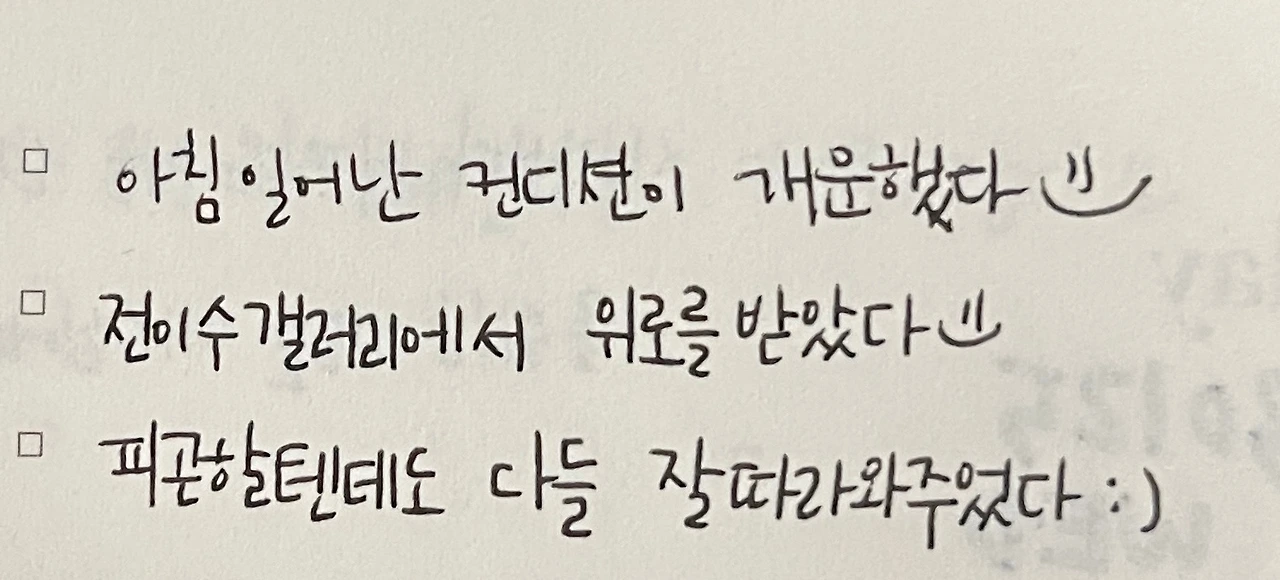 □ 아침일어난 컨디션이 개운했다 :)
□ 전이수갤러리에서 위로를 받았다 :)
□ 피곤할텐데도 다들 잘따라와주었다 :)